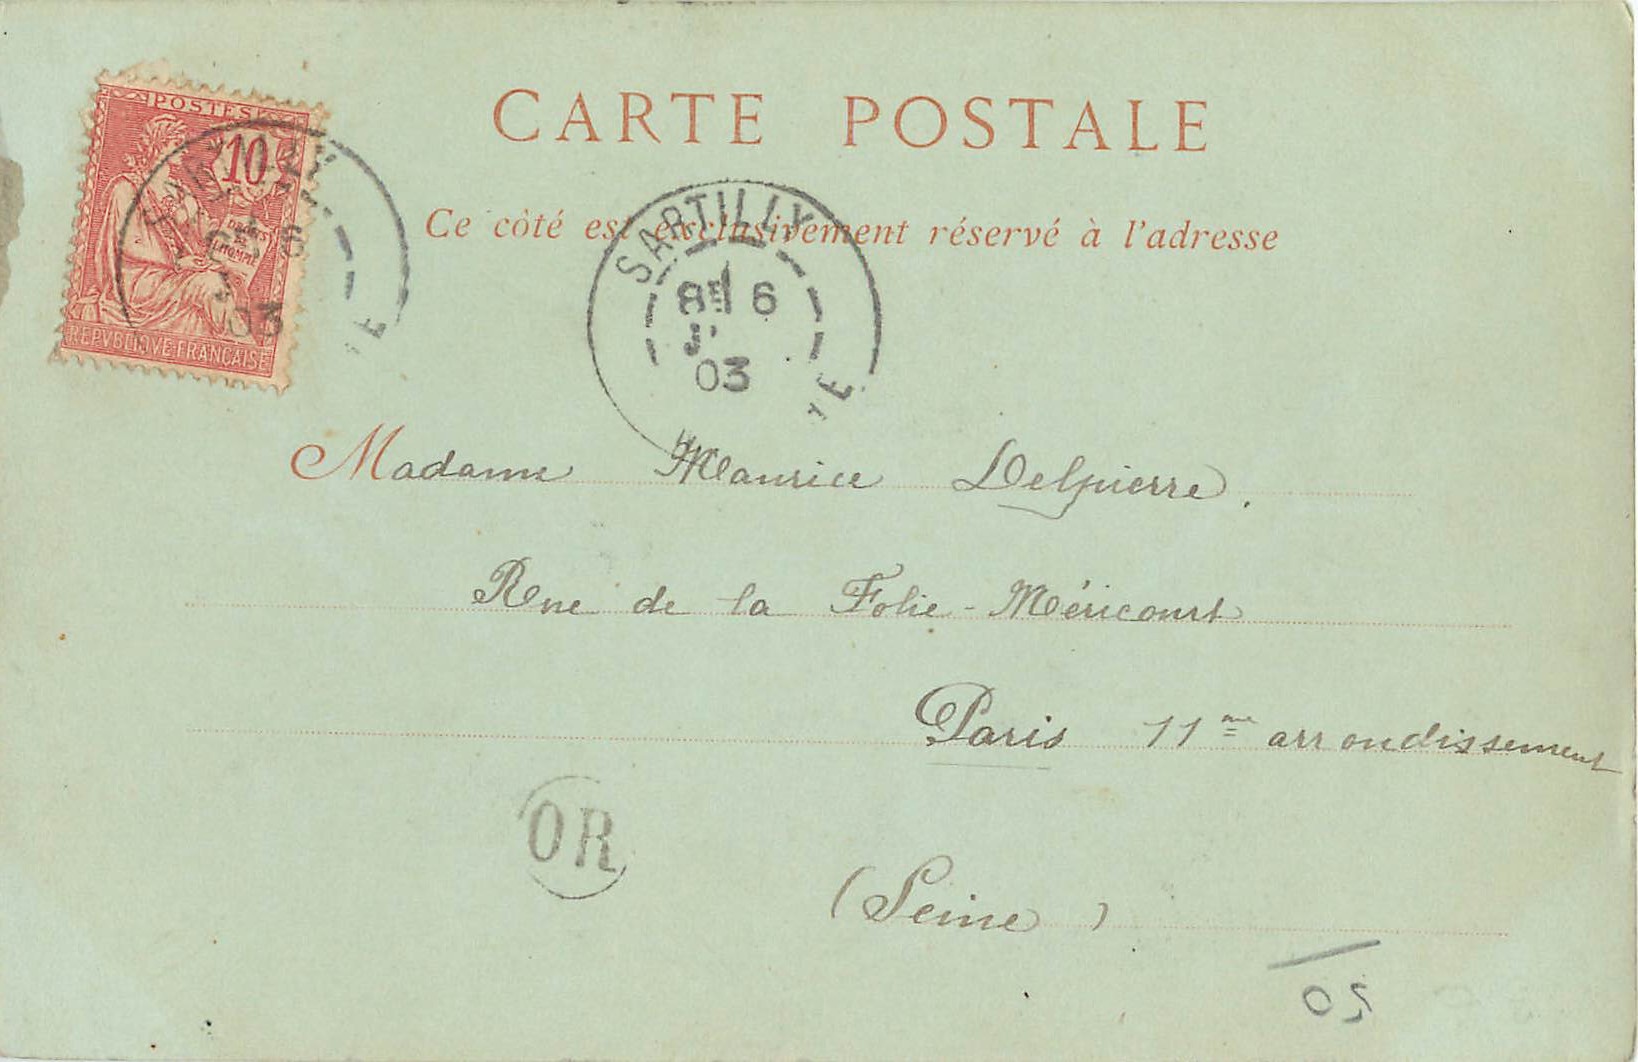 CARTE POSTALE
Ce côté est exclusivement réservé à l'adresse
POSTES
10
DROITS
DE
L'HOMME
REPVBLIQVE FRANCAISE
03
SARTILLY
8E 6
03
Madame Maurice Delpierre.
Rue de la Folie-Méricourt
Paris 11me arrondissement
OR
(Seine)